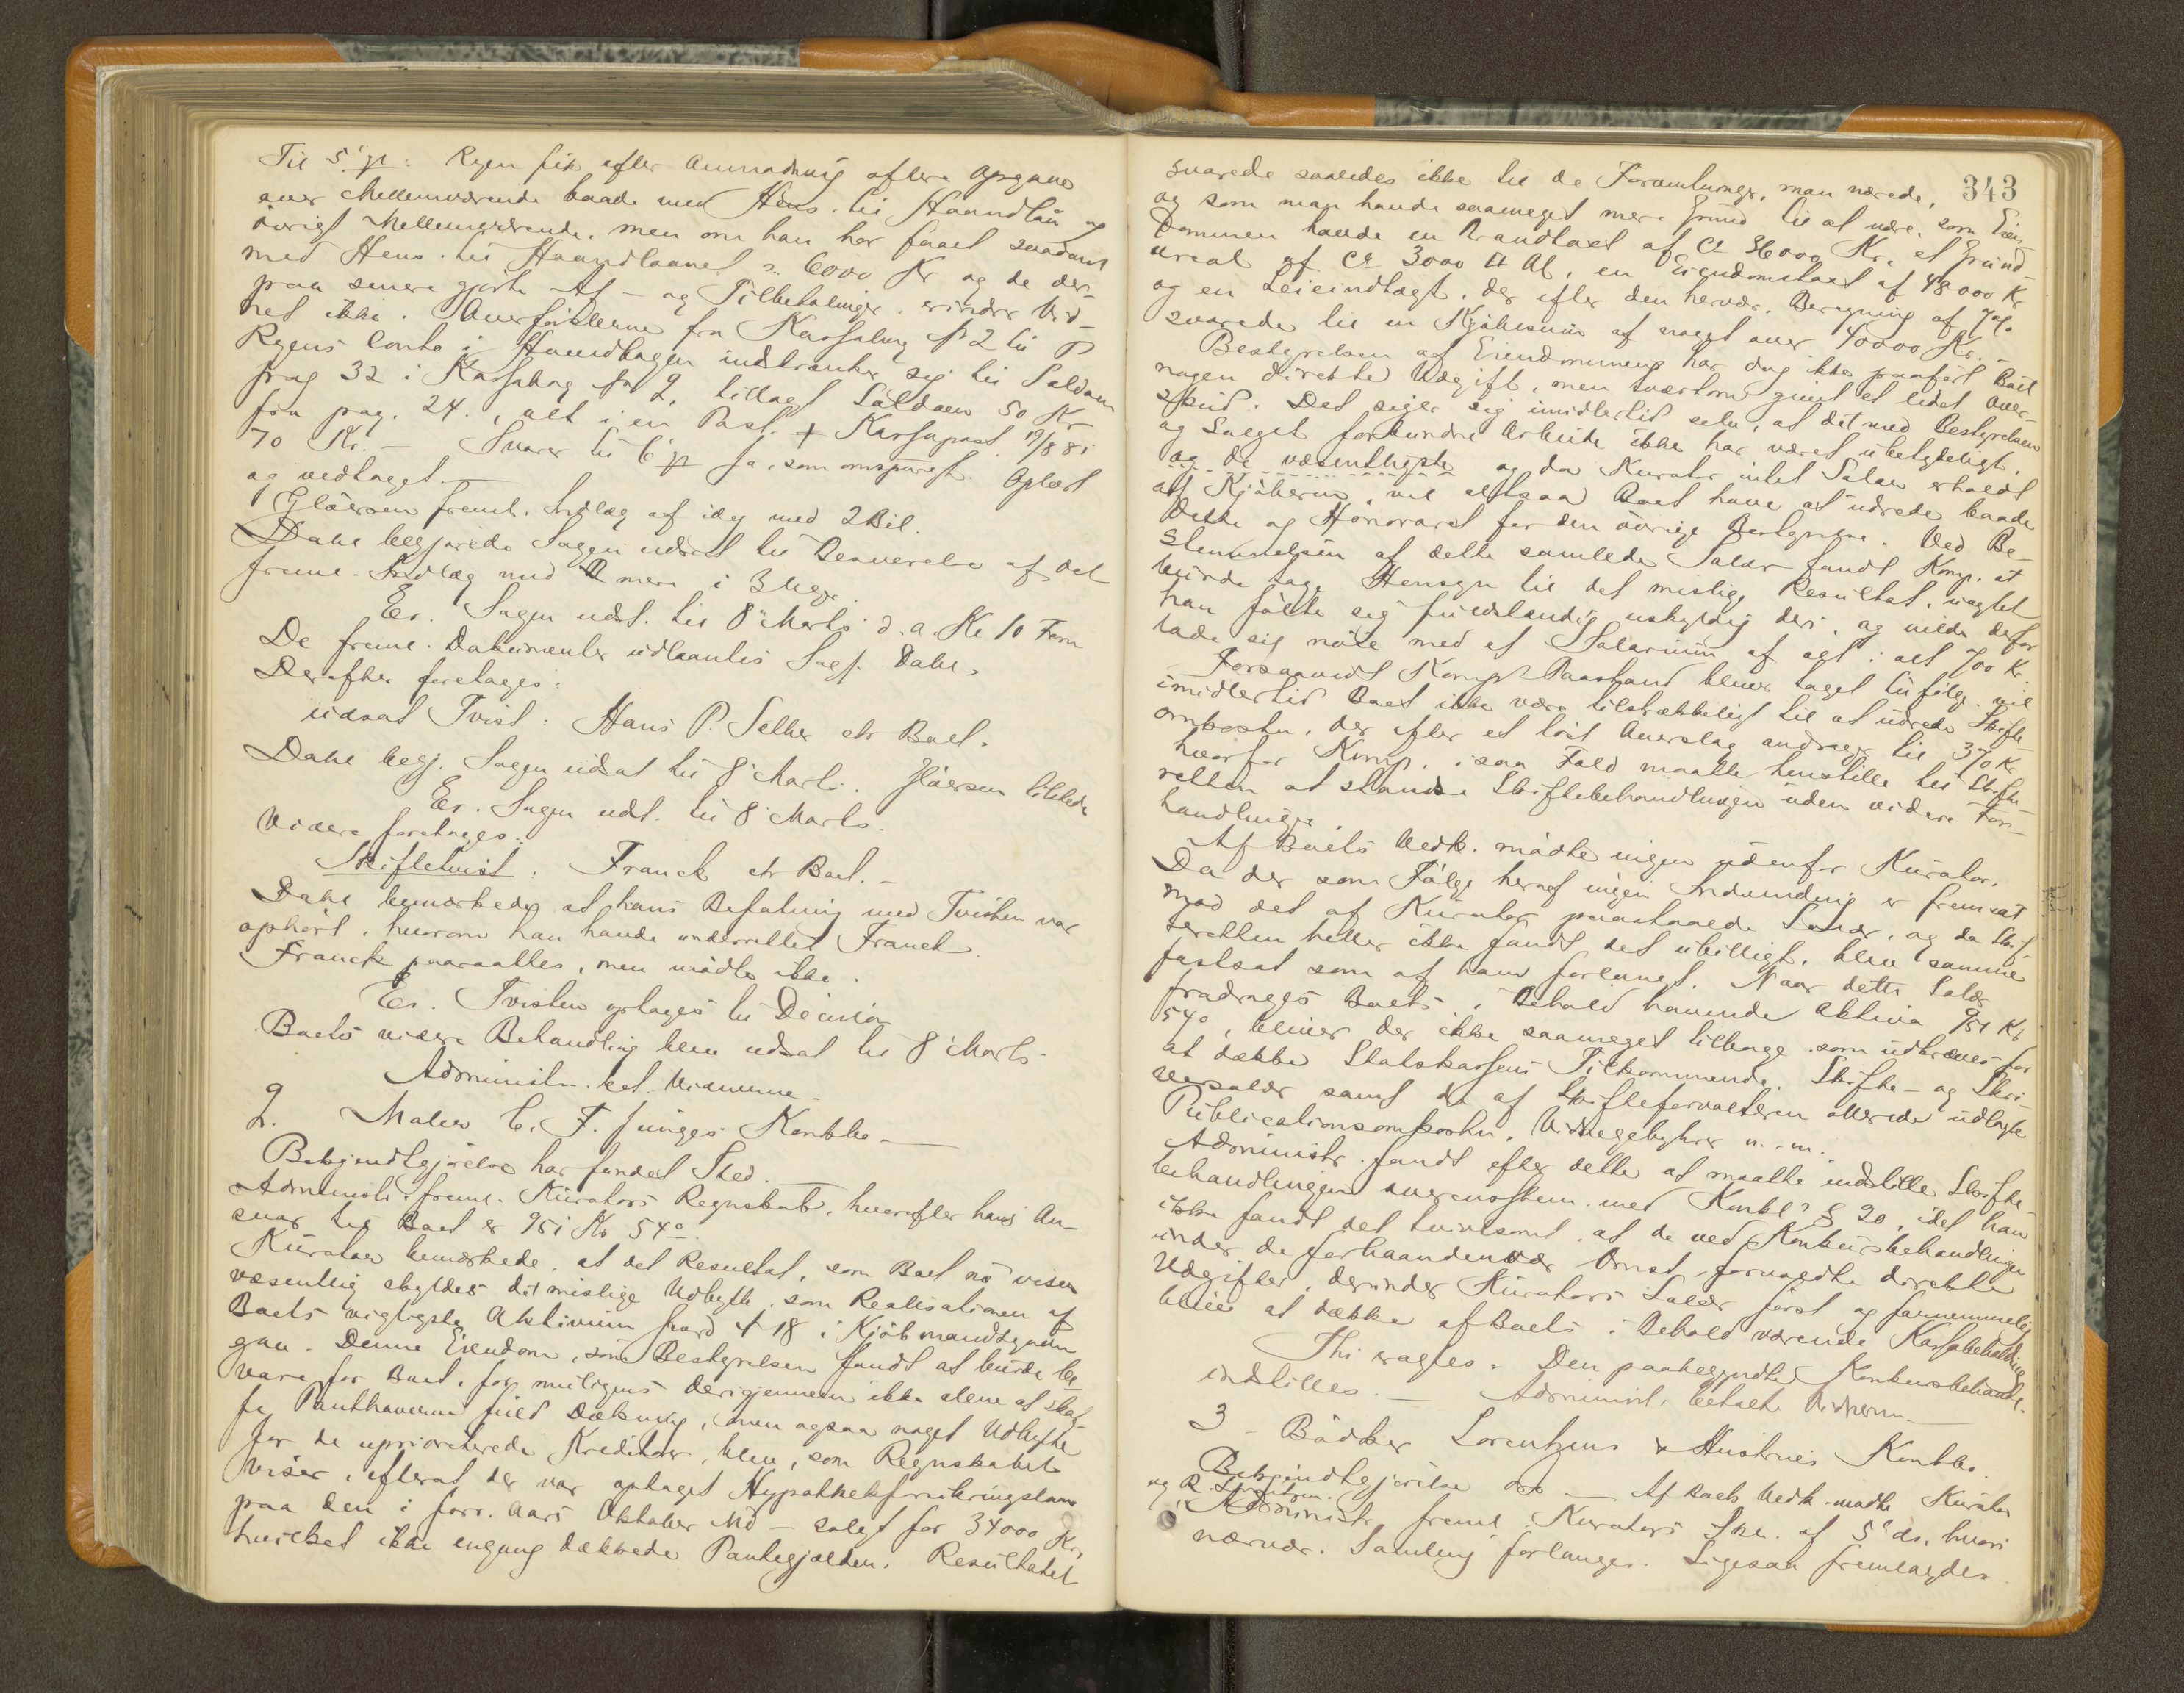 Til 5' sp: Ryen fik efter Anmodning oftere Opgave
over Mellemværende baade med Hens. til Haandlån og
øvrigt Mellemværende, men om han har faaet saadant
med Hens. til Haandlaanet 6000 Kr og de der-
paa senere gjorte Af- og Tilbetalinger, erindrer Vid-
net ikke. Overførslerne fra Kassabog № 2 til P
Ryens Conto i Hovedbogen indskrænker sig til Saldoen
pag 32 i Kassabog № 2, tillagt Saldoen 50 Kr
fra pag. 24, alt i en Post. + Kassapost 19/8 81
70 Kr. — Svarer til 6' sp ja, som omspurgt. Oplæst
og vedtaget. —
Gløersen freml. Indlæg af idag med 2 Bil.
Dahl begjærede Sagen udsat til Besvarelse af det
freml. Indlæg med mere i 3 Uger.
Er. Sagen uds. til 8' Marts d. a. Kl 10 Form
De freml. Dokumenter udlaantes Sagf. Dahl.
Derefter foretages:
udsat Tvist: Hans P. Sether ctr Boet.
Dahl begj. Sagen udsat til 8' Marts. Gløersen tilsted
Er. Sagen uds. til 8' Marts.
Videre foretages:
Skiftetvist: Franck ctr Boet. —
Dahl bemærkede, at hans Befatning med Tvisten var
ophørt, hvorom han havde underrettet Franck.
Franck paaraabtes, men mødte ikke.
Er. Tvisten optages til Decision
Boets videre Behandling blev udsat til 8' Marts
Administr. bet. Vidnerne.
2. Maler C. F. Junges Konkbo —
Bekjendtgjørelse har fundet Sted.
Administr. freml. Kurators Regnskab, hvorefter hans An-
svar til Boet er 951 Kr 54 ø.
Kurator bemærkede, at det Resultat, som Boet nu viser
væsentlig skyldes det mislige Udbytte, som Realisationen af
Boets vigtigste Aktivum Gaard № 18 i Kjøbmandsgaden
gav. Denne Eiendom, som Bestyrelsen fandt at burde be-
vare for Boet, for muligens derigjennem ikke alene at skaf-
fe Panthaverne fuld Dækning, men ogsaa noget Udbytte
for de uprioriterede Kreditorer, blev, som Regnskabet
viser, efterat der var optaget Hypothekforsikringslaan
paa den i forr. Aars Oktober Md — solgt for 34000 Kr,
hvilket ikke engang dækkede Pantegjælden. Resultatet
343
svarede saaledes ikke til de Forventninger, man nærede,
og som man havde saameget mere Grund til at nære, som Eien-
dommen havde en Brandtaxt af Ca 36000 Kr, et Grund-
areal af Ca 3000 □ Al, en Eiendomstaxt af 48000 Kr
og en Leieindtægt, der efter den hervær. Beregning af 7%
svarede til en Kjøbesum af noget over 40000 Kr. —
Bestyrelsen af Eiendommen har dog ikke paaført Boet
nogen direkte Udgift, men tvertom givet et lidet Over-
skud. Det siger sig imidlertid selv, at det med Bestyrelsen
og Salget forbundne Arbeide ikke har været ubetydeligt,
og de væsentligste og da Kurator intet Salær erholdt
af Kjøberen, vil altsaa Boet have at udrede baade
dette og Honoraret for den øvrige Bestyrelse. Ved Be-
stemmelsen af dette samlede Salær fandt Komp. at
burde tage Hensyn til det mislige Resultat, uagtet
han følte sig fuldstændig uskyldig deri, og vilde derfor
lade sig nøie med et Salarium af alt i alt 700 Kr.
Forsaavidt Komp's Paastand bliver taget tilfølge, vil
imidlertid Boet ikke være tilstrækkeligt til at udrede Skifte-
omkostn., der efter et løst Overslag andrager til 370 Kr,
hvorfor Komp. i saa Fald maatte henstille til Skifte-
retten at standse Skiftebehandlingen uden videre For-
handlinger.
Af Boets Vedk. mødte ingen udenfor Kurator.
Da der som Følge heraf ingen Indvending er fremsat
mod det af Kurator paastaaede Salær, og da Skif-
teretten heller ikke fandt det ubilligt, blev samme
fastsat som af ham forlangt. Naar dette Salær
fradrages Boets i Behold havende Aktiva 951 Kr
54 ø, bliver der ikke saameget tilbage, som udkræves for
at dække Statskassens Tilkommende, Skifte- og Skri-
versalær samt de af Skifteforvalteren allerede udlagte
Publicationsomkostn., Vidnegebyhrer m. m.
Administr. fandt efter dette at maatte indstille Skifte-
behandlingen overensstem. med Konkl's § 20, idet han
ikke fandt det tvivlsomt, at de ved Konkursbehandlingen
under de forhaandenvær. Omst. forvoldte direkte
Udgifter, derunder Kurators Salær først og fornemmelig
bliver at dække af Boets i Behold værende Kassabeholdning
Thi eragtes: Den paabegyndte Konkursbehandl.
indstilles. — Administr. betalte Vidnerne. —
3 — Bødker Lorentzens & Hustrues Konkbo.
Bekjendtgjørelse do — Af Boets Vedk. mødte Kurator
og R.
Administr. freml. Kurators Skr. af 5' ds, hvori
nærvær. Samling forlanges. Ligesaa fremlagdes